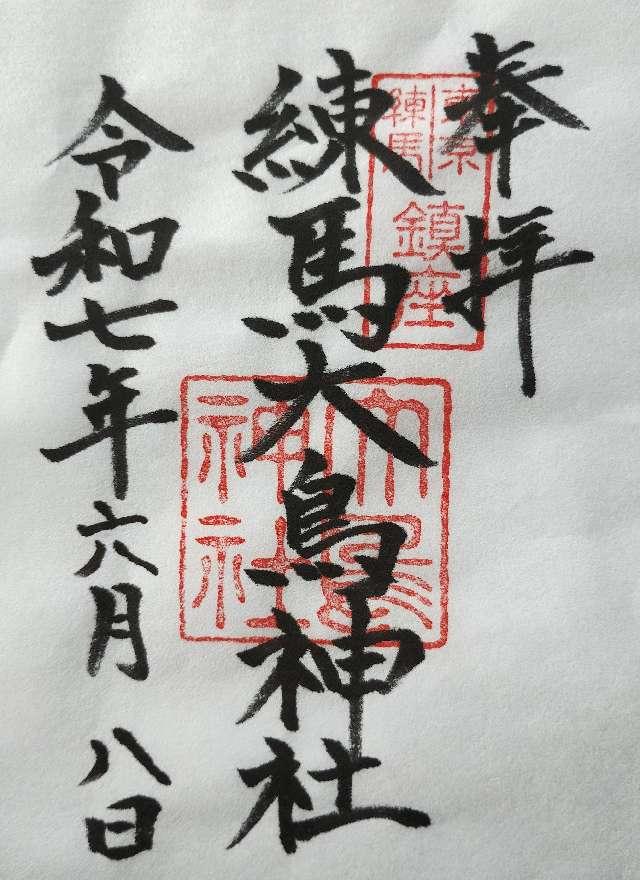 奉拝
東京
練馬
鎮座
練馬大鳥神社
大鳥
神社
令和七年六月八日